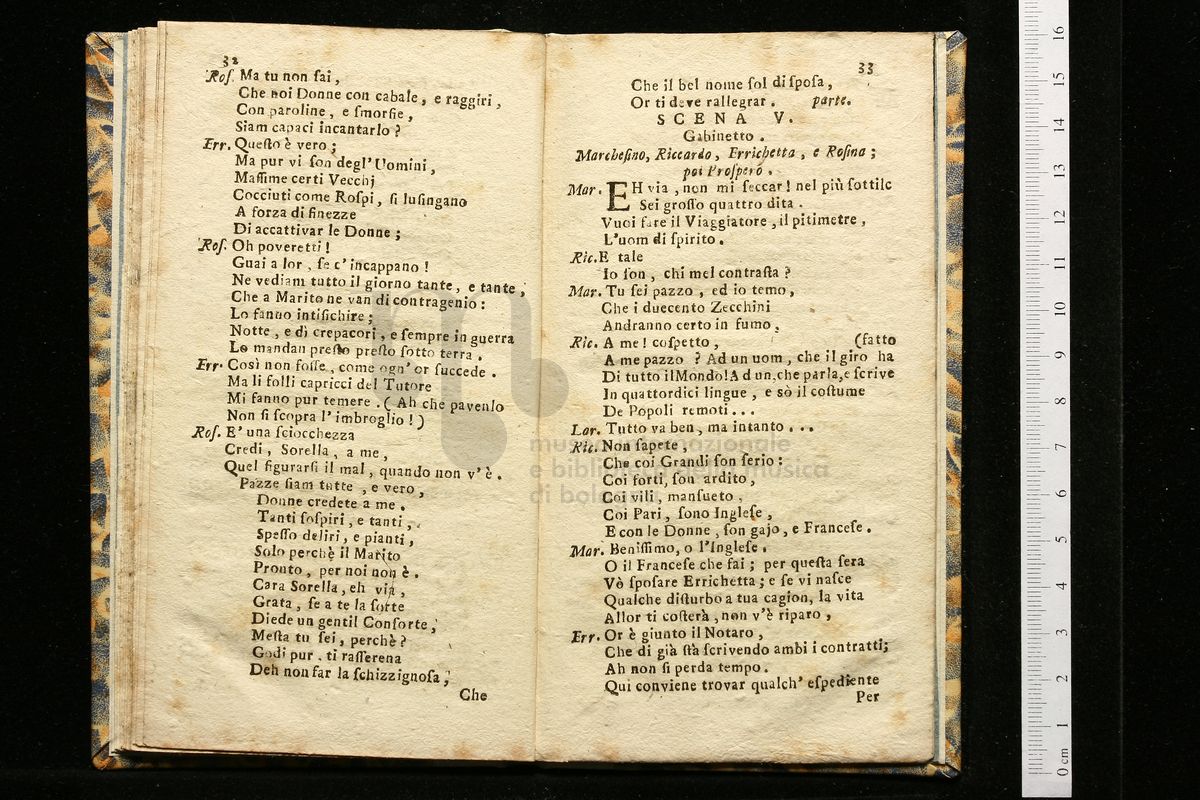 32
Roſ. Ma tu non ſai,
Che noi Donne con cabale, e raggiri,
Con paroline, e ſmorfie,
Siam capaci incantarlo?
Err. Queſto è vero;
Ma pur vi ſon degl' Uomini,
Maſſime certi Vecchj
Cocciuti come Roſpi, ſi luſingano
A forza di finezze
Di accattivar le Donne;
Roſ. Oh poveretti!
Guai a lor, ſe c' incappano!
Ne vediam tutto il giorno tante, e tante,
Che a Marito ne van di contragenio:
Lo fanno intiſichire;
Notte, e dì crepacori, e ſempre in guerra
Lo mandan preſto preſto ſotto terra.
Err. Così non foſſe, come ogn' or ſuccede.
Ma li folli capricci del Tutore
Mi fanno pur temere. (Ah che pavento
Non ſi ſcopra l' imbroglio!)
Roſ. E' una ſciocchezza
Credi, Sorella, a me,
Quel figurarſi il mal, quando non v' è.
Pazze ſiam tutte, e vero,
Donne credete a me.
Tanti ſoſpiri, e tanti,
Speſſo deliri, e pianti,
Solo perchè il Marito
Pronto, per noi non è.
Cara Sorella, eh via,
Grata, ſe a te la ſorte
Diede un gentil Conſorte,
Meſta tu ſei, perchè?
Godi pur. ti raſſerena
Deh non far la ſchizzignoſa;
Che
33
Che il bel nome ſol di ſpoſa,
Or ti deve rallegrar. parte.
SCENA V.
Gabinetto.
Marcheſino, Riccardo, Errichetta, e Roſina;
poi Proſpero.
Mar. EH via, non mi ſeccar! nel più ſottile
Sei groſſo quattro dita.
Vuoi fare il Viaggiatore, il pitimetre,
L'uom di ſpirito.
Ric. E tale
Io ſon, chi mel contraſta?
Mar. Tu ſei pazzo, ed io temo,
Che i duecento Zecchini
Andranno certo in fumo,
Ric. A me! coſpetto, (fatto
A me pazzo? Ad un uom, che il giro ha
Di tutto il Mondo! Ad un, che parla, e ſcrive
In quattordici lingue, e sò il coſtume
De Popoli remoti...
Lar. Tutto va ben, ma intanto...
Ric. Non ſapete,
Che coi Grandi ſon ſerio;
Coi forti, ſon ardito,
Coi vili, manſueto,
Coi Pari, ſono Ingleſe,
E con le Donne, ſon gajo, e Franceſe.
Mar. Beniſſimo, o l'Ingleſe.
O il Franceſe che fai; per queſta ſera
Vò ſpoſare Errichetta; e ſe vi naſce
Qualche diſturbo a tua cagion, la vita
Allor ti coſterà, non v'è riparo,
Err. Or è giunto il Notaro,
Che di già ſtà ſcrivendo ambi i contratti;
Ah non ſi perda tempo.
Qui conviene trovar qualch' eſpediente
Per
museo internazionale
e biblioteca della musica
di bologna
0 cm 1 2 3 4 5 6 7 8 9 10 11 12 13 14 15 16